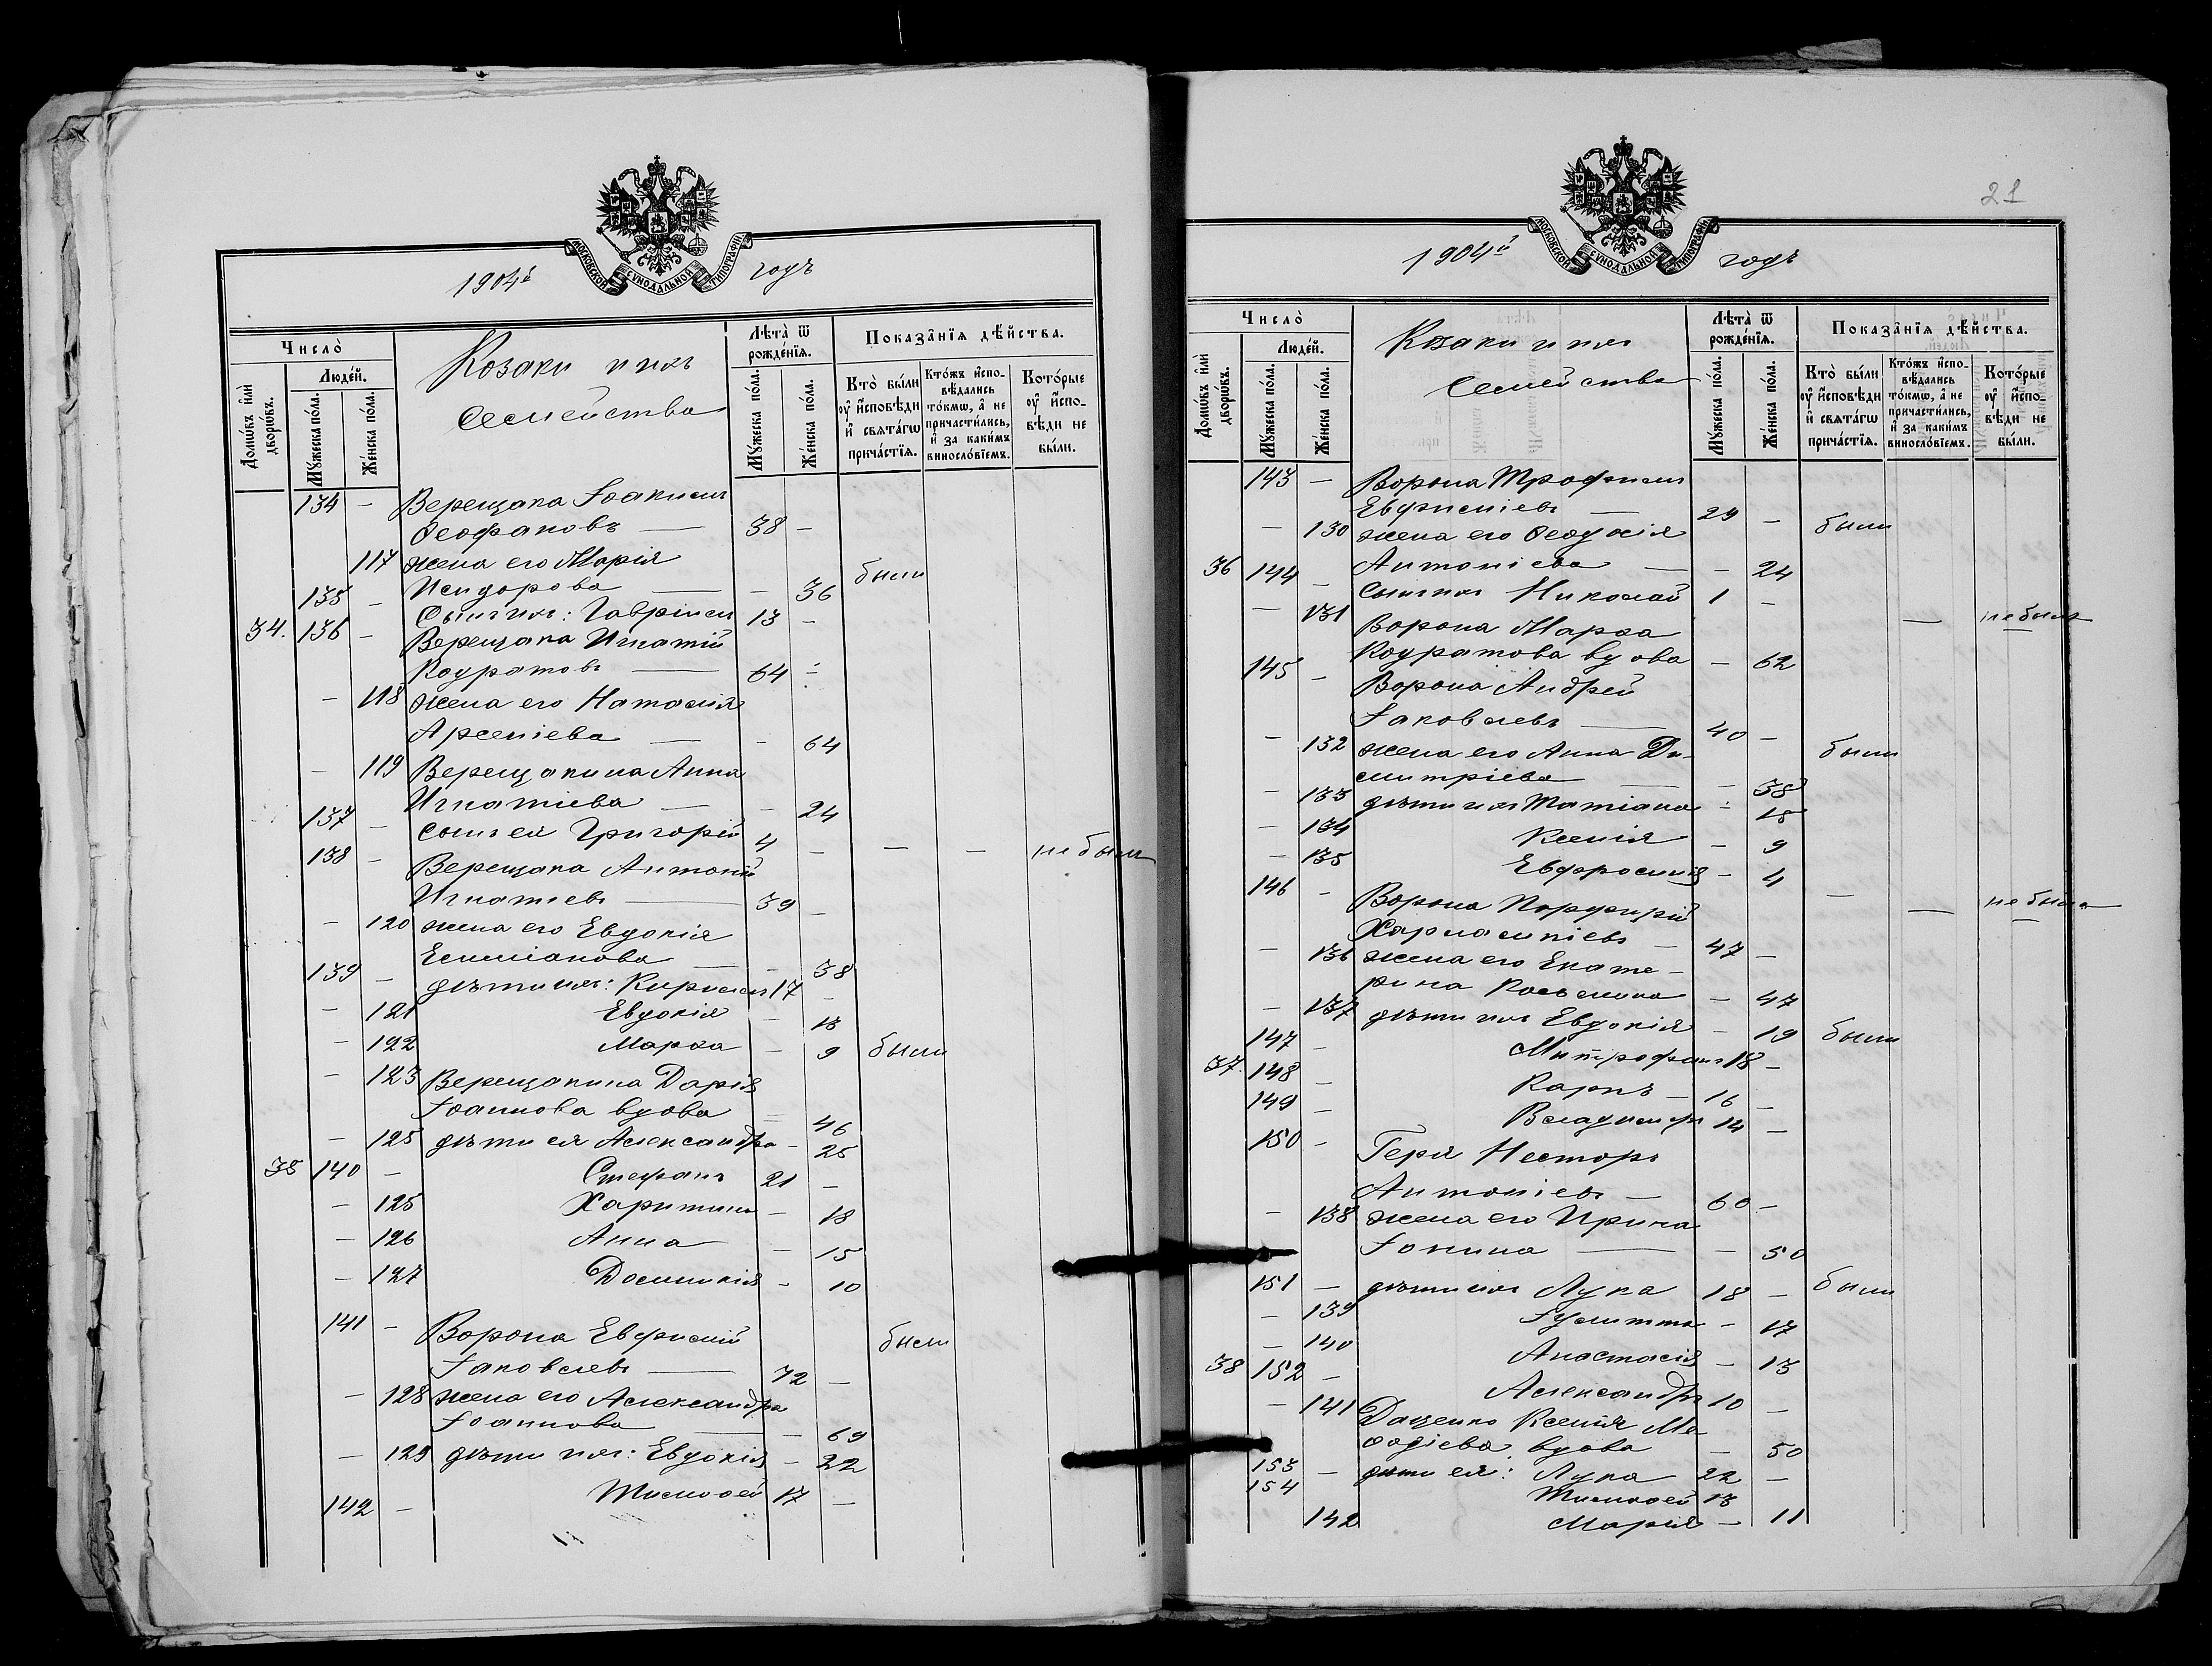 МОСКОВСКОЙ СѴНОДАЛЬНОЙ ТИПОГРАФІИ
1904й годъ
Число̀
Людей.
Домѡ́въ и҆лѝ дворѡ́въ.
Мꙋ́жеска по́ла.
Же́нска по́ла.
Козаки и ихъ
семейства
Лѣта̀ ѿ рожде́нїѧ.
Мꙋ́жеска по́ла.
Же́нска по́ла.
Показа̑нїѧ дѣ́йства.
Кто̀ бы́ли ᲂу҆ и҆́сповѣди и҆ свѧта́гѡ прича́стїѧ.
Кто́жъ и҆спо-
вѣ́дались
то́кмѡ, а҆ не
причасти́лись,
и҆ за каки́мъ
винosло́вїемъ.
Кото́рые ᲂу҆ и҆́спо-
вѣди не бы́ли.
134 - Верещака Іоакимъ
Ѳеофановъ — 38 -
117 жена его Марія
Исидорова — - 36 были
135 - Сынъ ихъ: Гавріилъ 13 -
34. 136 - Верещака Игнатій
Кодратовъ — 64 -
- 118 жена его Наталія
Арсеніева — - 64
- 119 Верещакина Анна
Игнатіева — - 24
137 - сынъ ея Григорій 4 - - - не былъ
138 - Верещака Антоній
Игнатіевъ — 39 -
- 120 жена его Евдокія
Емиліанова — - 38
139 - дѣти ихъ: Кириллъ 17 -
- 121 Евдокія - 13
- 122 Марѳа - 9 были
- 123 Верещакина Дарія
Іоаннова вдова - 46
- 125 дѣти ея Александра - 25
35 140 - Стефанъ 21 -
- 125 Харитина - 18
- 126 Анна - 15
- 127 Домникія - 10
141 - Ворона Евфимій были
Іаковлевъ — 72 -
- 128 жена его Александра
Іоаннова — - 69
- 129 дѣти ихъ: Евдокія - 22
142 - Тимоѳей 17 -
21
МОСКОВСКОЙ СѴНОДАЛЬНОЙ ТИПОГРАФІИ
1904й годъ
Число̀
Людей.
Домѡ́въ и҆лѝ дворѡ́въ.
Мꙋ́жеска по́ла.
Же́нска по́ла.
Козаки и ихъ
семейства
Лѣта̀ ѿ рожде́нїѧ.
Мꙋ́жеска по́ла.
Же́нска по́ла.
Показа̑нїѧ дѣ́йства.
Кто̀ бы́ли ᲂу҆ и҆́сповѣди и҆ свѧта́гѡ прича́стїѧ.
Кто́жъ и҆спо-
вѣ́дались
то́кмѡ, а҆ не
причасти́лись,
и҆ за каки́мъ
винosло́вїемъ.
Кото́рые ᲂу҆ и҆́спо-
вѣди не бы́ли.
143 - Ворона Трофимъ
Евфиміевъ — 29 - были
- 130 жена его Ѳеодосія
Антоніева — - 24
36 144 - Сынъ ихъ Николай 1 - — не былъ
- 131 Ворона Марѳа
Кодратова вдова - 62
145 - Ворона Андрей
Іаковлевъ — 40 -
- 132 жена его Анна Ди- были
митріева — - 38
- 133 дѣти ихъ Татіана - 15
- 134 Ксенія - 9
- 135 Евфросинія - 4 - — не была
146 - Ворона Порфирій
Харлампіевъ — 47 -
- 136 жена его Екате-
рина Косьмина - 47
- 137 дѣти ихъ Евдокія - 19 были
147 - Митрофанъ 18 -
37. 148 - Карпъ - 16 -
149 - Владимиръ 14 -
150 - Геря Несторъ
Антоніевъ — 60 -
- 138 жена его Ирина
Іонина — - 50
151 - дѣти ихъ Лука 18 - были
- 139 Іулитта - 17
- 140 Анастасія - 13
38 152 - Александръ 10 -
- 141 Даценко Ксенія Ме-
ѳодіева вдова - 50
153 - дѣти ея: Лука 22 -
154 Тимоѳей 13
142 Марія - 11